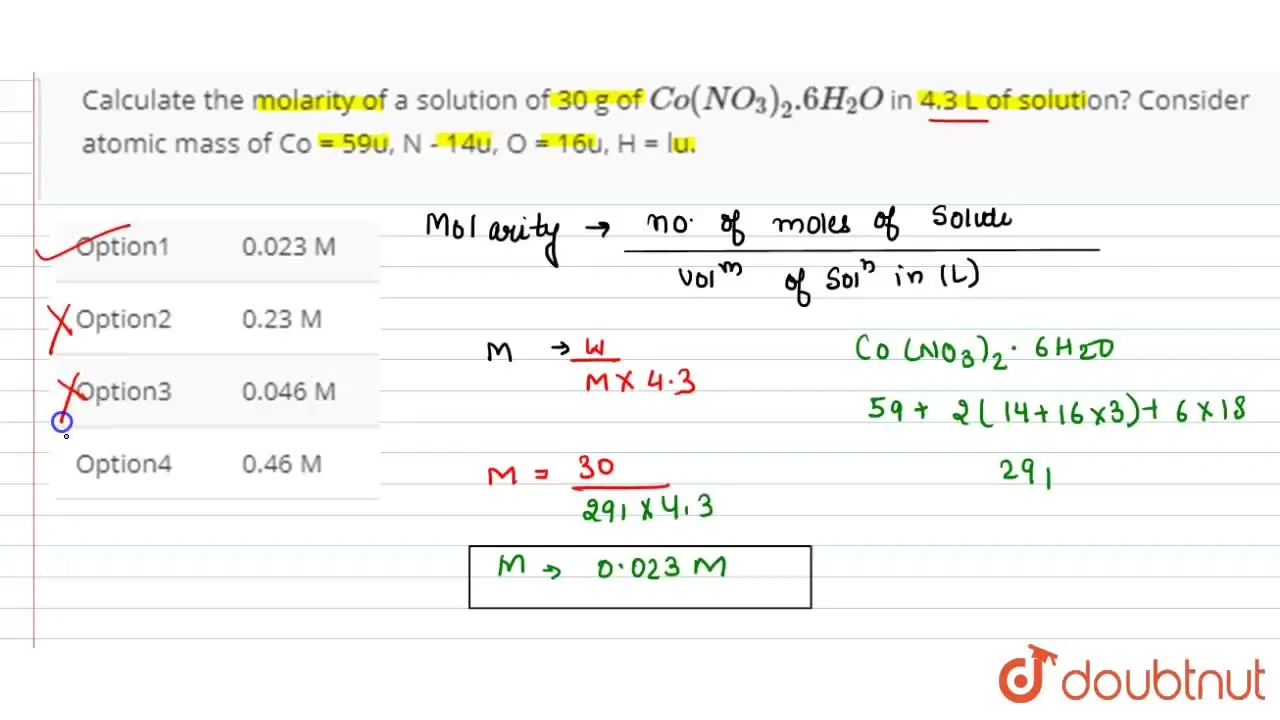 Calculate the molarity of a solution of 30 g of Co(NO₃)₂.6H₂O in 4.3 L of solution? Consider
atomic mass of Co = 59u, N - 14u, O = 16u, H = lu.
Option1 0.023 M
Option2 0.23 M
Option3 0.046 M
Option4 0.46 M
Molarity → no. of moles of Solute
volᵐ of Solⁿ in (L)
M → W
M × 4.3
Co (NO₃)₂ · 6H₂O
59 + 2 ( 14 + 16 × 3) + 6 × 18
291
M = 30
291 × 4.3
M → 0.023 M
doubtnut